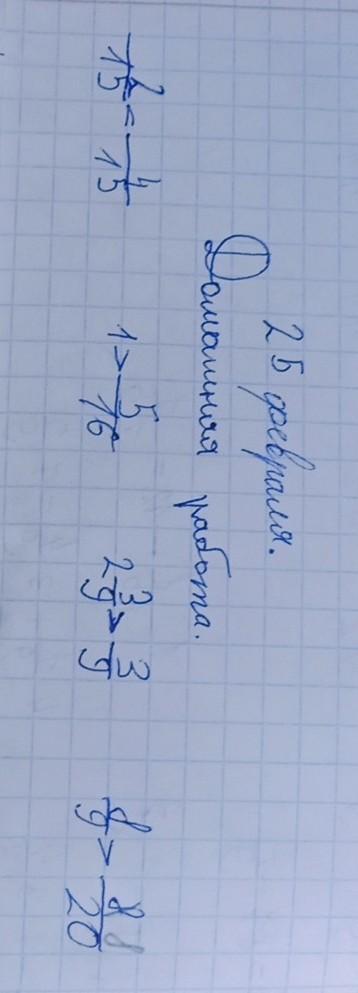 25 февраля.
Домашняя работа.
2/15 < 4/15 1 > 5/16 2 3/9 > 3/9 8/9 > 8/20